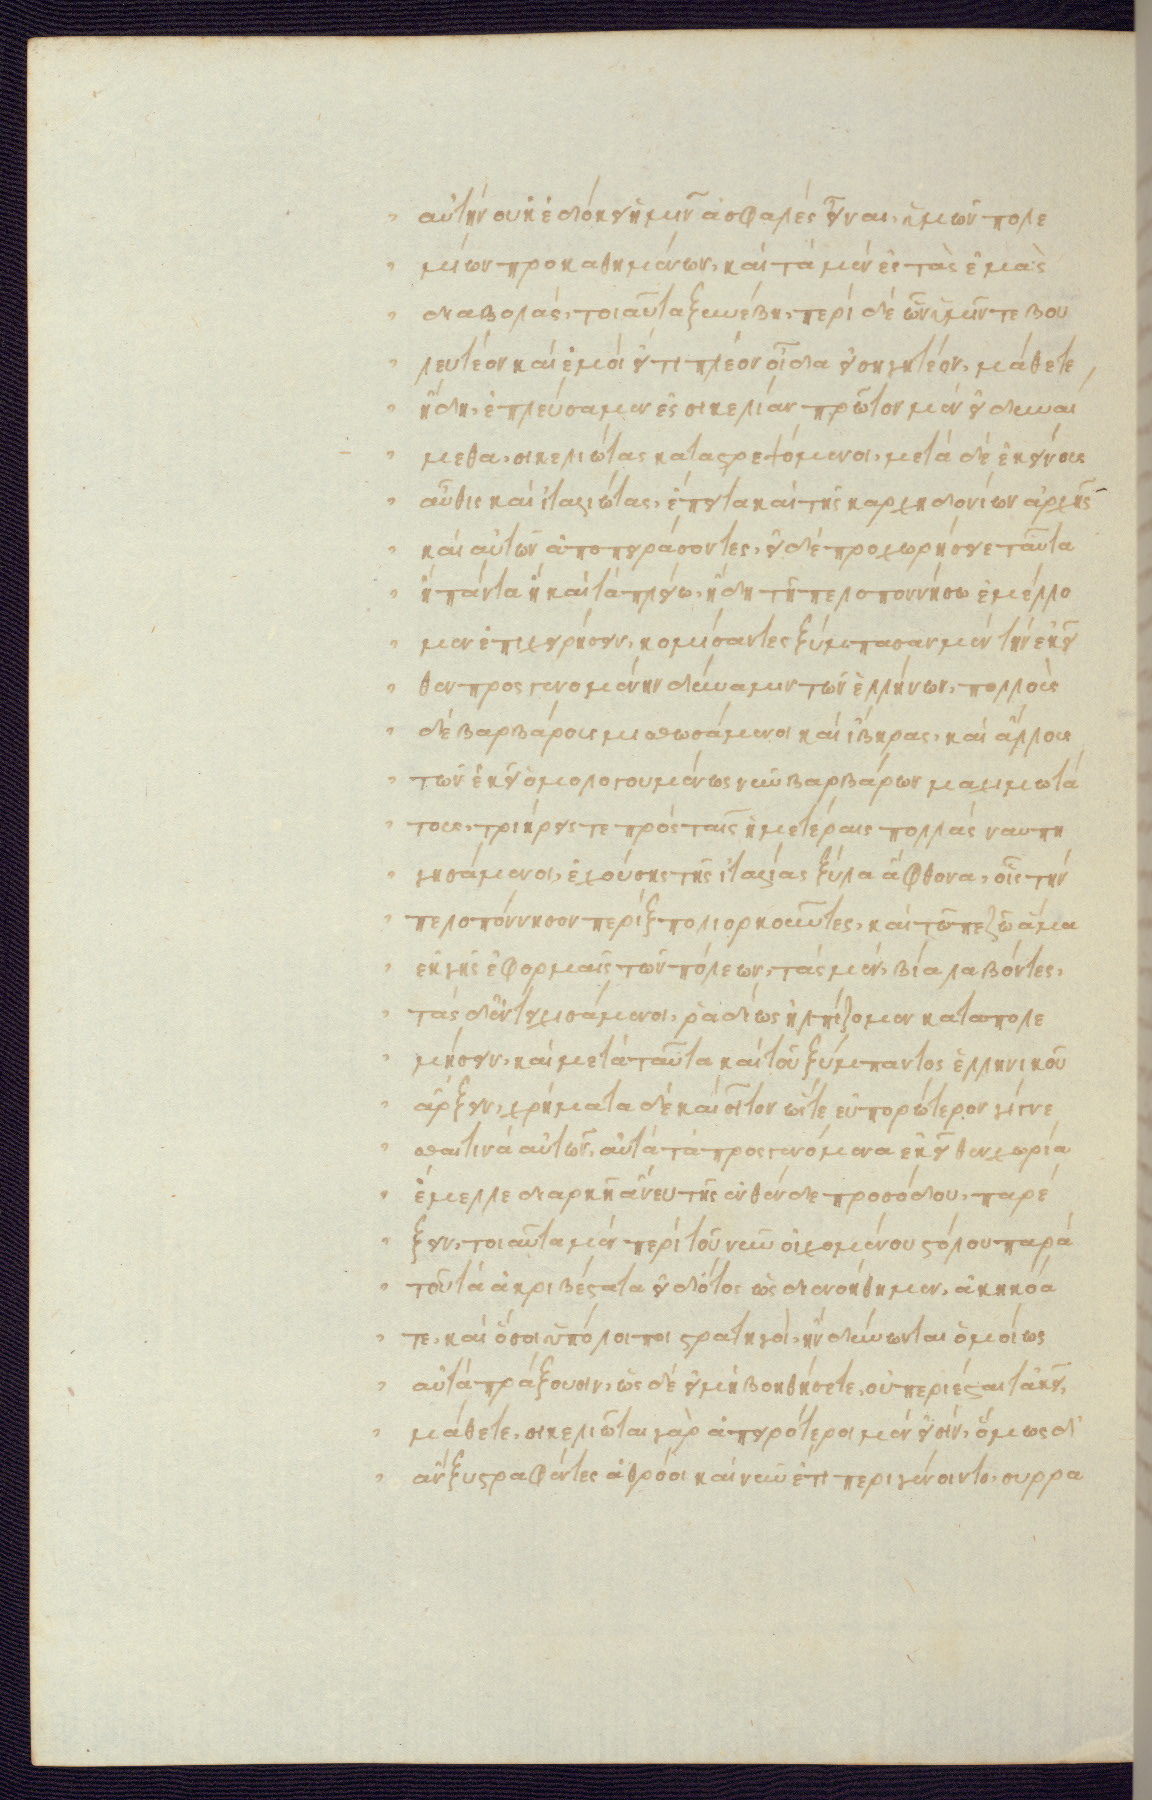 αὐτὴν οὐκ ἐδόκει ἡμῖν ἀσφαλὲς εἶναι, ἡμῶν πολε
μίων προκαθημένων, καὶ τὰ μὲν ἐς τὰς ἐμὰς
διαβολὰς, τοιαῦτα ξυνέβη, περὶ δὲ ὧν ὑμῖν τε βου
λευτέον καὶ ἐμοὶ εἴ τι πλέον οἶδα ἐσηγητέον, μάθετε
ἤδη, ἐπλεύσαμεν ἐς σικελίαν πρῶτον μὲν εἰ δυναί
μεθα, σικελιώτας καταστρεψόμενοι, μετὰ δὲ ἐκείνους
αὖθις καὶ ἰταλιώτας, ἔπειτα καὶ τῆς καρχηδονίων ἀρχῆς
καὶ αὐτῶν ἀποπειράσοντες, εἰ δὲ προχωρήσειε ταῦτα
ἢ πάντα ἢ καὶ τὰ πλείω, ἤδη τῇ πελοποννήσω ἐμέλλο
μεν ἐπιχειρήσειν, κομίσαντες ξύμπασαν μὲν τὴν ἐκεῖ
θεν προσγενομένην δύναμιν τῶν ἑλλήνων, πολλοὺς
δὲ βαρβάρους μισθωσάμενοι καὶ ἴβηρας, καὶ ἄλλους
τῶν ἐκεῖ ὁμολογουμένως νῦν βαρβάρων μαχιμωτά
τους, τριήρεις τε πρὸς ταῖς ἡμετέραις πολλὰς ναυπη
γησάμενοι, ἐχούσης τῆς ἰταλίας ξύλα ἄφθονα, οἷς τὴν
πελοπόννησον πέριξ πολιορκοῦντες, καὶ τῶ πεζῶ ἅμα
ἐκ γῆς ἐφορμαῖς τῶν πόλεων, τὰς μὲν, βία λαβόντες,
τὰς δ' ἐντειχισάμενοι, ῥαδίως ἠλπίζομεν καταπολε
μήσειν, καὶ μετὰ ταῦτα καὶ τοῦ ξύμπαντος ἑλληνικοῦ
ἄρξειν, χρήματα δὲ καὶ σῖτον ὥστε εὐπορώτερον γίγνε
σθαι τινὰ αὐτῶν, αὐτὰ τὰ προσγενόμενα ἐκεῖθεν χωρία
ἔμελλε διαρκῆ ἄνευ τῆς ἐνθένδε προσόδου, παρέ
ξειν, τοιαῦτα μὲν περὶ τοῦ νῦν οἰχομένου στόλου παρὰ
τοῦ τὰ ἀκριβέστατα εἰδότος ὡς διενοήθημεν, ἀκηκόα
τε, καὶ ὅσοι ὑπόλοιποι στρατηγοὶ, ἢν δύνωνται ὁμοίως
αὐτὰ πράξουσιν, ὡς δὲ εἰ μὴ βοηθήσετε, οὐ περιέσται τἀκεῖ,
μάθετε, σικελιῶται γὰρ ἀπειρότεροι μέν εἰσιν, ὅμως δ'
ἂν ξυστραφέντες ἀθρόοι καὶ νῦν ἔτι περιγένοιντο, συρρα